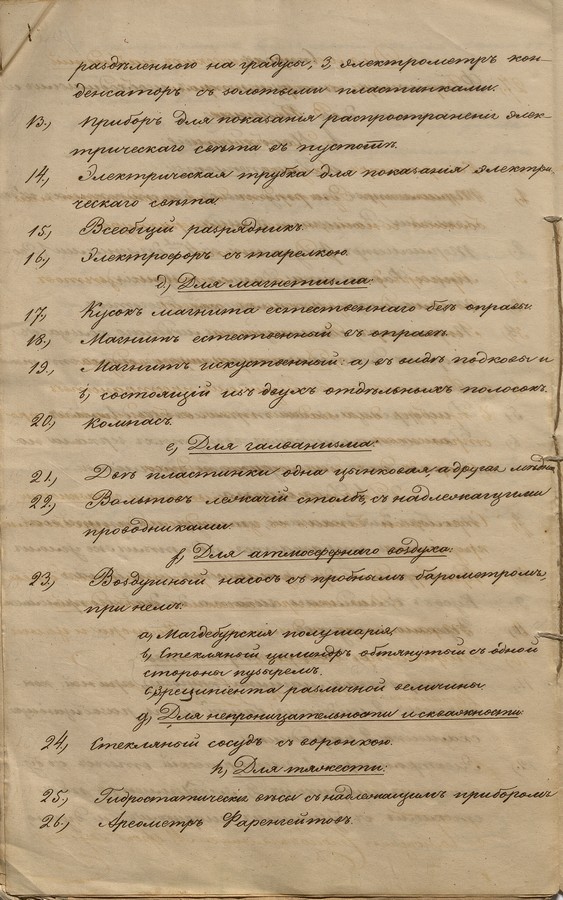 раздѣленного на градусы, 3, электрометръ кон-
денсаторъ съ золотыми пластинками.
13., Приборъ для показанія распространенія элек-
трическаго свѣта въ пустотѣ.
14., Электрическая трубка для показанія электри-
ческаго свѣта.
15., Всеобщій разрядникъ.
16., Электрофоръ съ тарелкою.
d) Для магнетизма.
17., Кусокъ магнита естественнаго безъ оправы.
18., Магнитъ естественный въ оправѣ.
19., Магнитъ искуственный: a) въ видѣ подковы и
b) состоящій изъ двухъ отдѣльныхъ полосокъ.
20., Компасъ.
e) Для галванизма:
21., Двѣ пластинки одна цынковая, а другая мѣдная
22., Вольтовъ лежачій столбъ, съ надлежащими
проводниками.
f) Для атмосфернаго воздуха:
23., Воздушный насосъ съ пробнымъ барометромъ,
при немъ:
a) Магдебурскія полушарія,
b) Стекляный цилиндръ обтянутый съ одной
стороны пузыремъ.
c) реципіента различной величины.
g) Для непроницательности и скважности:
24., Стекляный сосудъ съ воронкою.
h) Для тяжести:
25., Гидростатическіе вѣсы съ надлежащимъ приборомъ
26., Ареометръ Фаренгейтовъ.